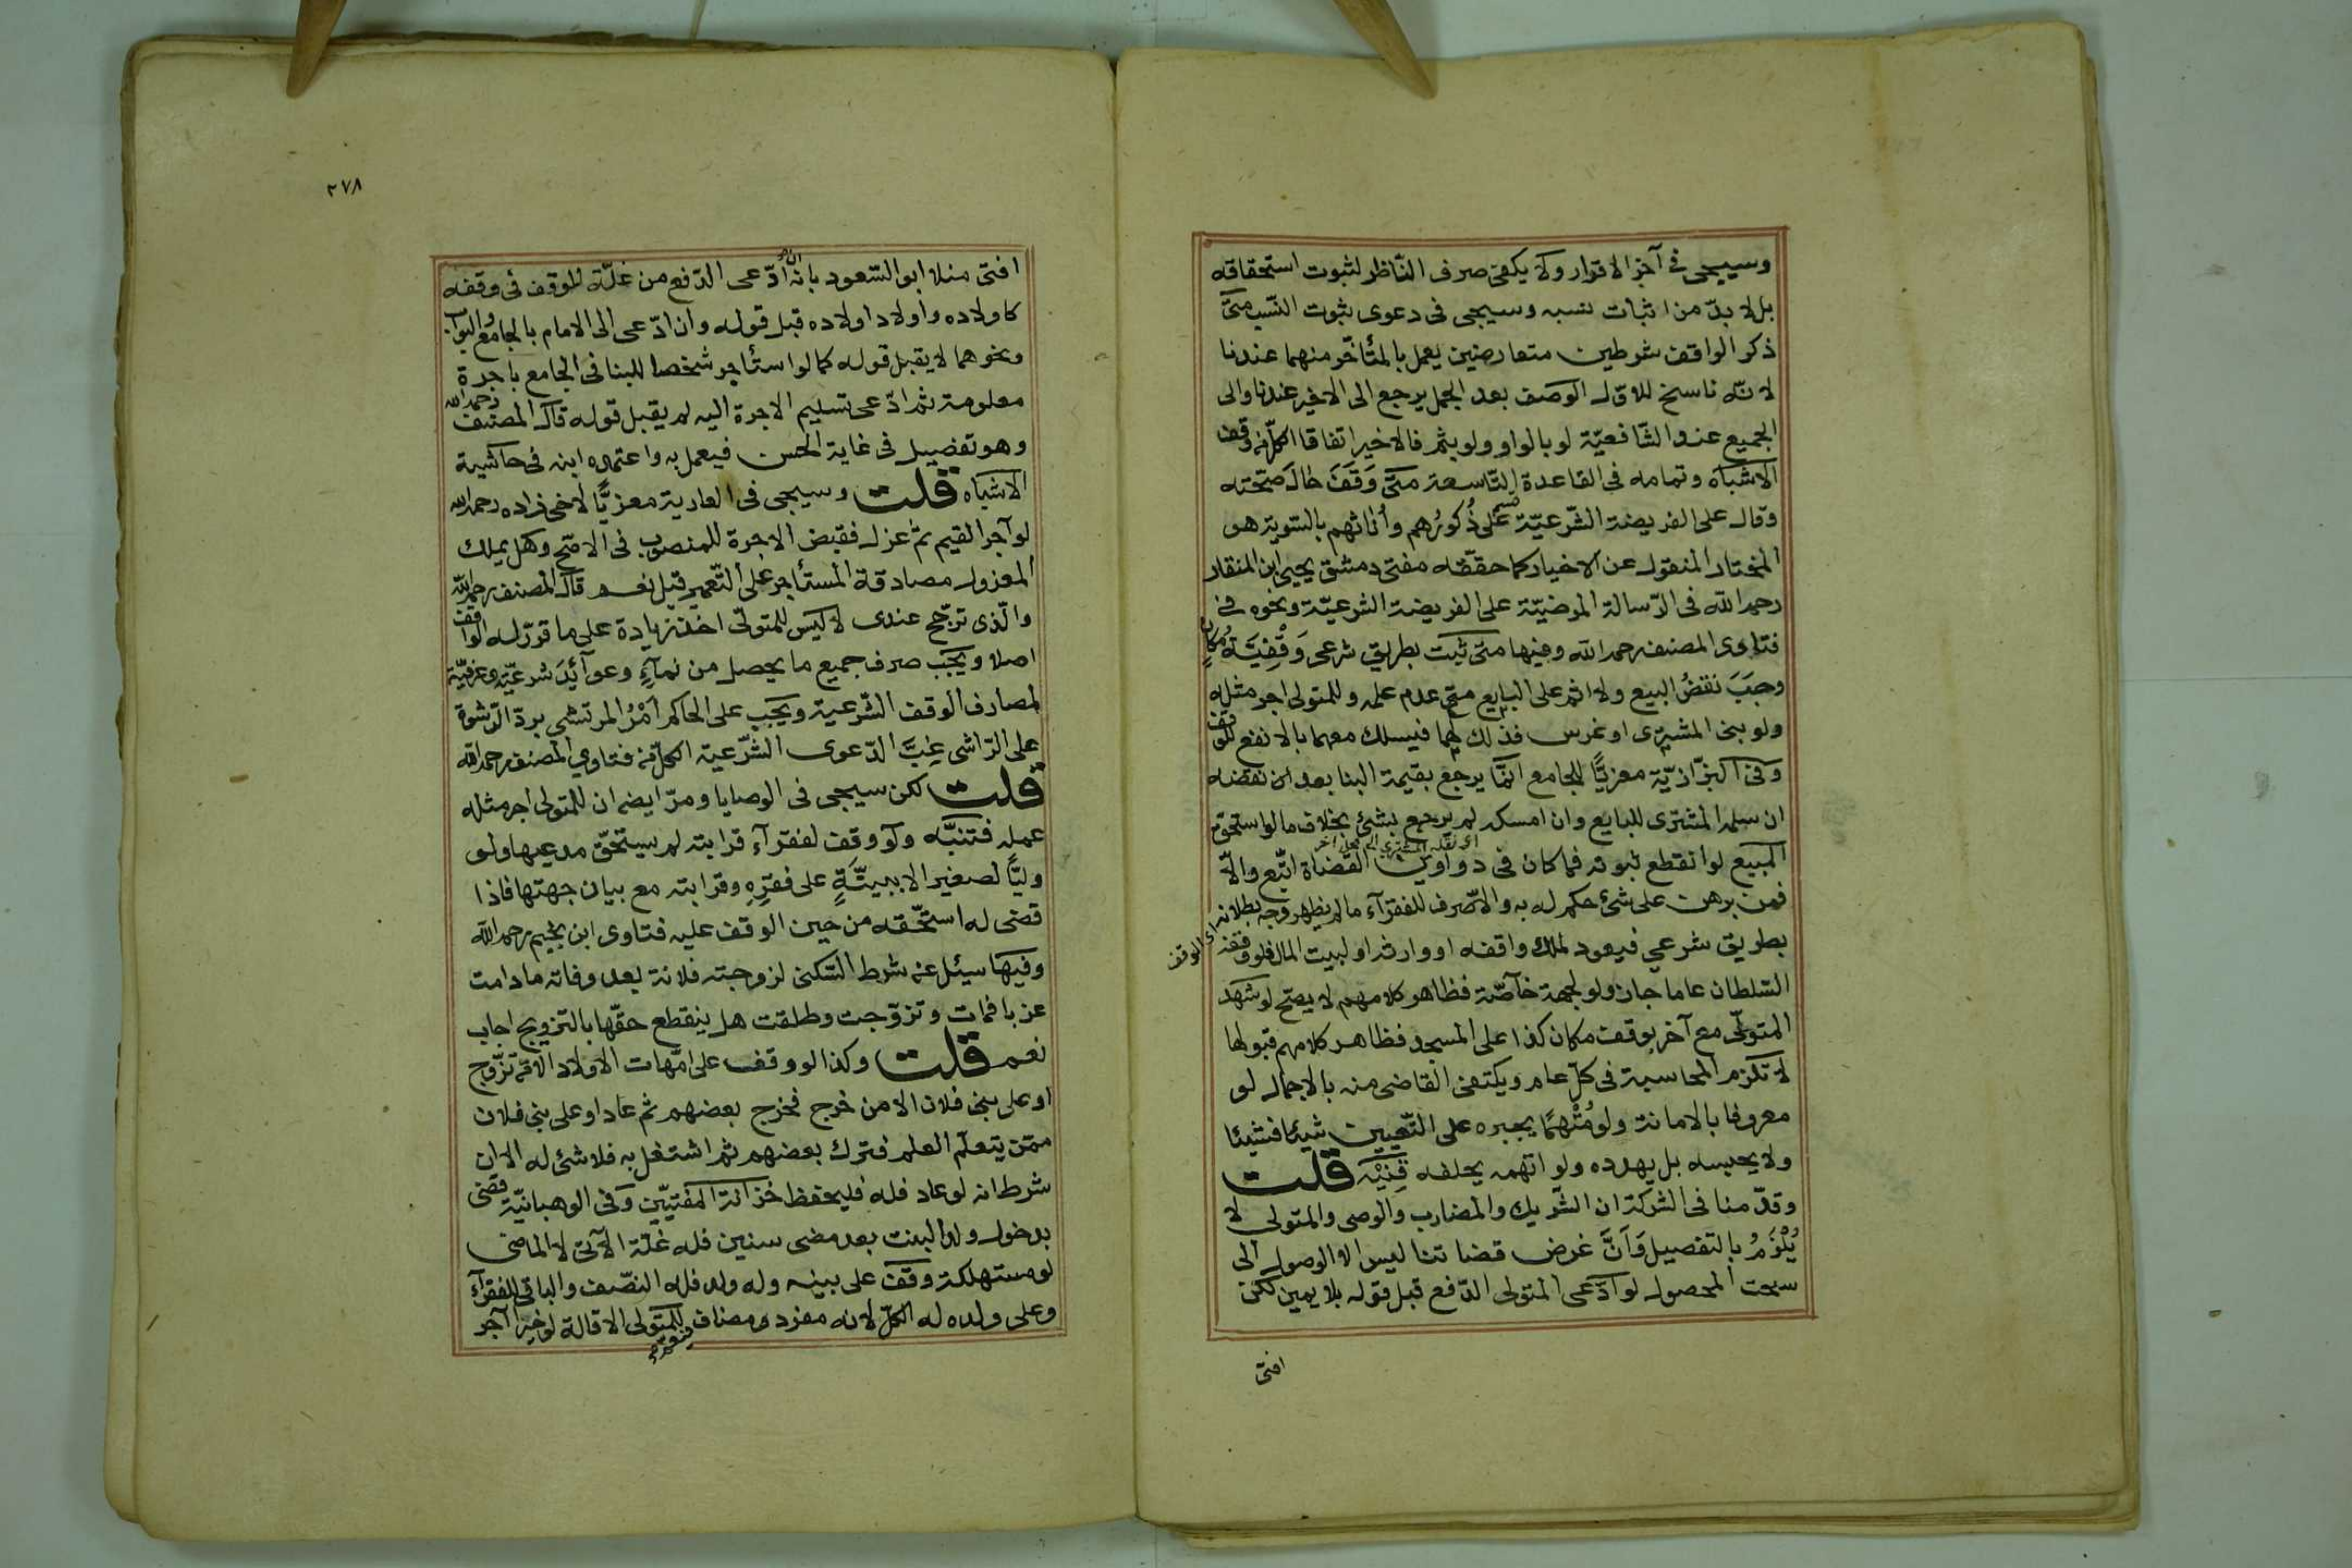 وسيجى في آخر الاقرار ولا يكفى صرف الناظر لثبوت استحقاقه
بل لا بدّ من اثبات نسبه وسيجى فى دعوى ثبوت النسب متى
ذكر الواقف شرطين متعارضين يعمل بالمتأخّر منهما عندنا
لانّه ناسخ للاوّل الوصف بعد الجمل يرجع الى الاخير عندنا والى
الجميع عند الشّافعيّة لو بالواو ولو بثم فالاخير اتفاقا الكلّ من وقف
الاشباه وتمامه فى القاعدة التّاسعة متى وَقَفَ حال صحّته
وقال على الفريضة الشّرعيّة قسم على ذُكورُهم وأناثهم بالسّوية هو
المختار المنقول عن الاخيار كما حققّه مفتى دمشق يحيى ابن المنقار
رحمه الله فى الرّسالة المرضيّة على الفريضة الشرعيّة ونحوه في
فتاوى المصنف رحمه الله وفيها متى ثبت بطريق شرعى وَقْفِيَّةُ مكانٍ
وجبَ نقضُ البيع ولا اثم على البايع مع عدم علمه وللمتولى اجر مثله
ولو بنى المشترى او غرس فذلك لهما فيسلك معهما بالانفع للوقف
وفى البزّازيّة معزيًّا للجامع انّما يرجع بقيمة البنا بعد ان نقضه
ان سلم المشترى للبايع وان امسكه لم يرجع بشئ بخلاف مالو استحق
المبيع لو انقطع ثبوته فما كان فى دواوين القضاة اتّبع والّا
فمن برهن على شئ حكم له به والا صُرف للفقرآء ما لم يظهر وجه بطلانه
بطريق شرعي فيعود لملك واقفه او وارثه او لبيت المال فلو وقفه
السّلطان عاما جاز ولو لجهة خاصّة فظاهر كلامهم لا يصحّ لو شهد
المتولّى مع آخر بوقف مكان كذا على المسجد فظاهر كلامهم قبولها
لا تلزم المحاسبة فى كلّ عام ويكتفى القاضى منه بالاجمال لو
معروفا بالامانة ولو مُتْهمًا يجبره على التّعيين شيئا فشيئا
ولا يحبسه بل يهدده ولو اتهمه يحلفه قِنْيَه قلت
وقدّمنا فى الشركة ان الشّريك والمضارب والوصى والمتولى لا
يُلْزَمُ بالتفصيل وَاَنَّ غرض قضاتنا ليس الا الوصول الى
سحت المحصول لو ادّعى المتولى الدّفع قبل قوله بلا يمين لكن
افتى
٢٧٨
افتى منلا ابو السّعود بانه ان ادّعى الدّفع من غلّة الوقف فى وقفه
كاولاده واولاد اولاده قبل قوله وان ادّعى الى الامام بالجامع والبوّاب
ونحوهما لا يقبل قوله كما لو استأجر شخصا للبنا فى الجامع باجرة
معلومة ثم ادّعى تسليم الاجرة اليه لم يقبل قوله قال المصنف رحمه الله
وهو تفضيل فى غاية الحسن فيعمل به واعتمده ابنه فى حاشية
الاشباه قلت وسيجى فى العارية معزيًّا لاخى زاده رحمه الله
لو آجر القيم ثم عزل فقبض الاجرة للمنصوب فى الاصح وهل يملك
المعزول مصادقة المستأجر على التّعمير قيل نعم قال المصنف رحمه الله
والّذى ترجّح عندى لا ليس للمتولّى اخذ زيادة على ما قرّر له الواقف
اصلا ويجب صرف جميع ما يحصل من نمآءٍ وعوآئدَ شرعيّة وعرفيّة
لمصارف الوقف الشّرعية ويجب على الحاكم اَمْرُ المرتشى بردّ الرّشوة
على الرّاشى غِبَّ الدّعوى الشّرعية الكلّ فى فتاوي المصنف رحمه الله
قلت لكن سيجى فى الوصايا ومرّ ايضا ان للمتولى اجر مثله
عمله فتنبّه ولو وقف لفقرآء قرابته لم يستحقّ مدعيها ولو
وليًّا لصغير الا ببيّنَةٍ على فقرِهِ وقرابته مع بيان جهتها فاذا
قضى له استحّقه من حين الوقف عليه فتاوى ابن نجيم رحمه الله
وفيها سئل عن شرط السّكنى لزوجته فلانة بعد وفاته ما دامت
عزبا فمات وتزوّجت وطلقت هل ينقطع حقّها بالتزويج اجاب
نعم قلت وكذا لو وقف على امّهات الاولاد الا من تزّوج
او على بنى فلان الا من خرج فخرج بعضهم ثم عاد او على بنى فلان
ممّن يتعلّم العلم فترك بعضهم ثم اشتغل به فلا شئ له الا ان
شرط انه لو عاد فله فليحفظ خزانة المفتيّين وفى الوهبانيّة قضى
بدخول ولد البنت بعد مضى سنين فله غلّة الآتى لا الماضى
لو مستهلكة وقف على بنيه وله ولد فله النصّف والباقى للفقرآء
وعلى ولده له الكلّ لانه مفرد ومضاف للمتولى الاقالة لو خيرا آجر